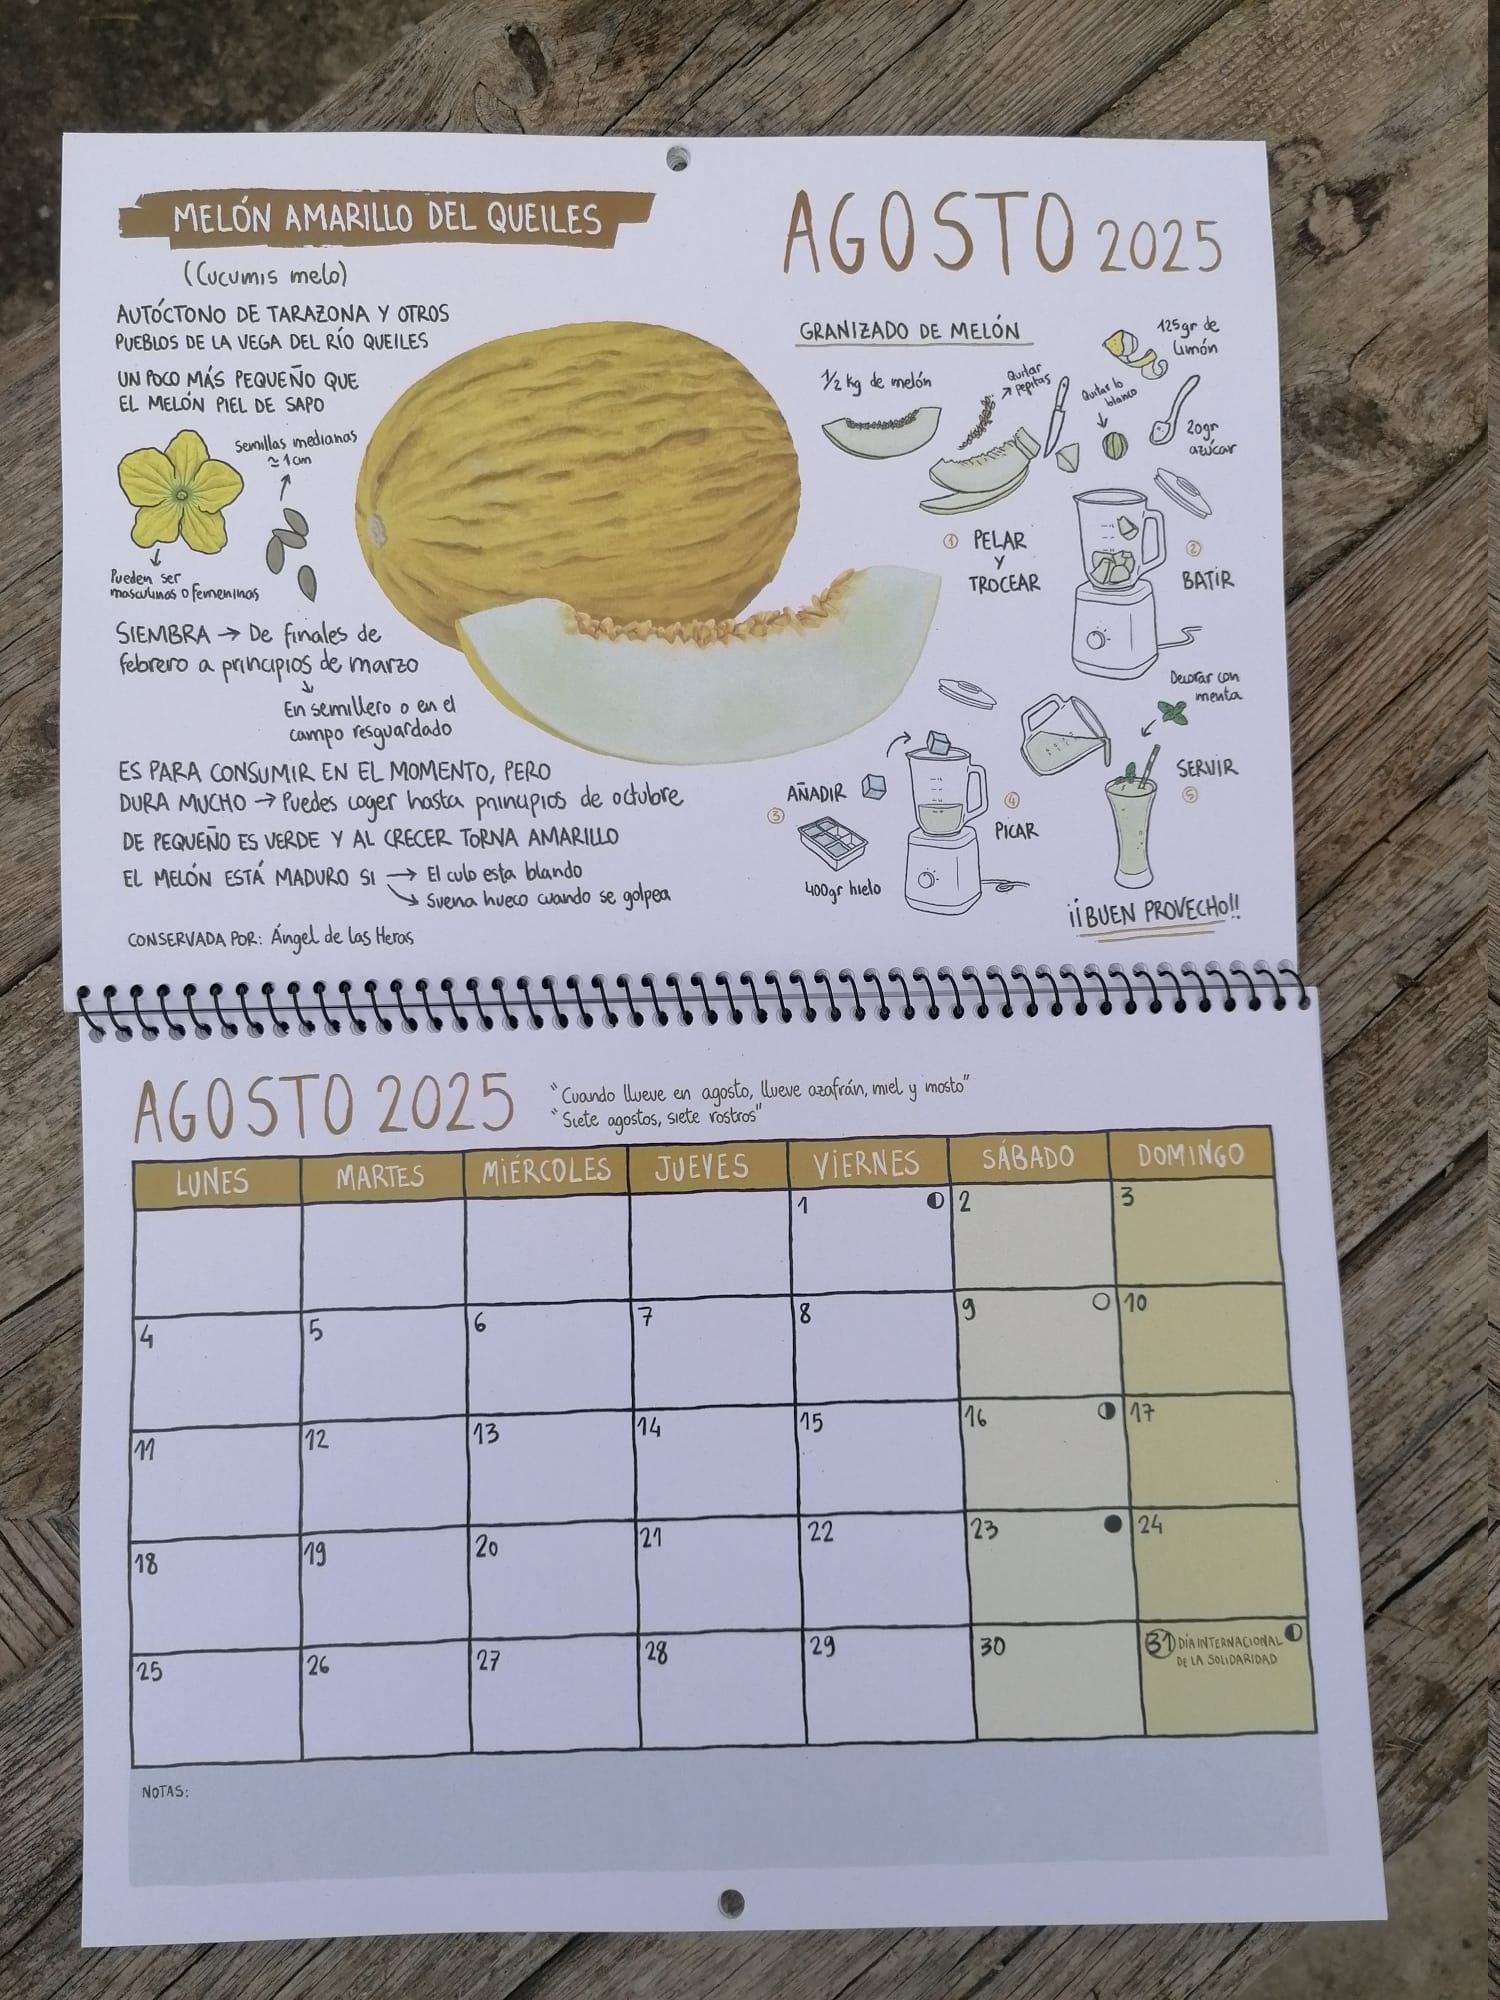 MELÓN AMARILLO DEL QUEILES
(Cucumis melo)
AUTÓCTONO DE TARAZONA Y OTROS
PUEBLOS DE LA VEGA DEL RÍO QUEILES
UN POCO MÁS PEQUEÑO QUE
EL MELÓN PIEL DE SAPO
Semillas medianas
≃ 1cm
Pueden ser
masculinas o femeninas
SIEMBRA → De finales de
febrero a principios de marzo
En semillero o en el
campo resguardado
ES PARA CONSUMIR EN EL MOMENTO, PERO
DURA MUCHO → Puedes coger hasta principios de octubre
DE PEQUEÑO ES VERDE Y AL CRECER TORNA AMARILLO
EL MELÓN ESTÁ MADURO SI → El culo esta blando
→ Suena hueco cuando se golpea
CONSERVADA POR: Ángel de las Heras
AGOSTO 2025
GRANIZADO DE MELÓN
125gr de
limón
1/2 kg de melón
Quitar
pepitas
Quitar lo
blanco
20gr
azúcar
① PELAR
Y
TROCEAR
②
BATIR
Decorar con
menta
AÑADIR
③
400gr hielo
④
PICAR
SERVIR
⑤
¡¡BUEN PROVECHO!!
AGOSTO 2025
"Cuando llueve en agosto, llueve azafrán, miel y mosto"
"Siete agostos, siete rostros"
LUNES MARTES MIÉRCOLES JUEVES VIERNES SÁBADO DOMINGO
1 2 3
4 5 6 7 8 9 10
11 12 13 14 15 16 17
18 19 20 21 22 23 24
25 26 27 28 29 30 31 DÍA INTERNACIONAL
DE LA SOLIDARIDAD
NOTAS: